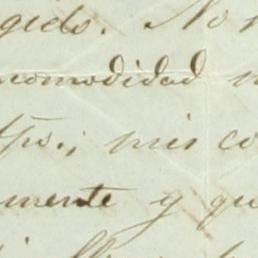 gido. No
comodidad
tpo.; mis co
mente y qu